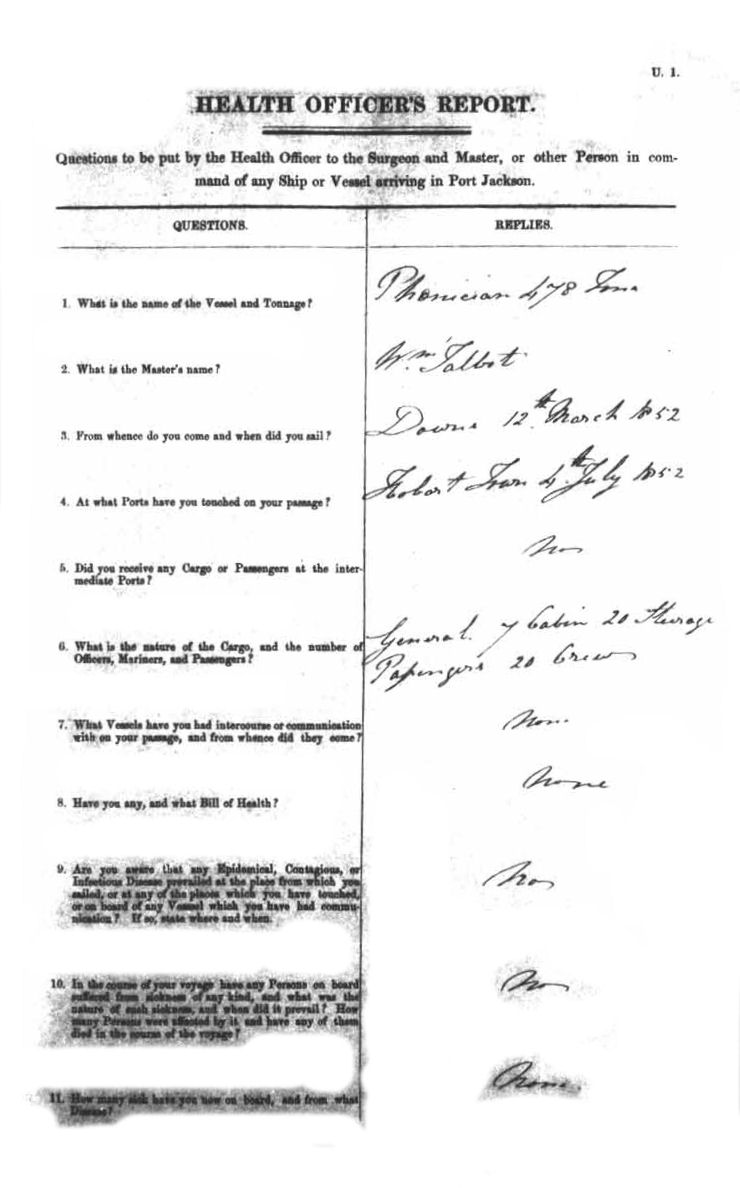 U. 1.
HEALTH OFFICER'S REPORT.
Questions to be put by the Health Officer to the Surgeon and Master, or other Person in com-
mand of any Ship or Vessel arriving in Port Jackson.
QUESTIONS.
REPLIES.
1. What is the name of the Vessel and Tonnage?
Phonician 478 Tons
2. What is the Master's name?
Wm Talbot
3. From whence do you come and when did you sail?
Downs 12th March 1852
4. At what Ports have you touched on your passage?
Hobart Town 4th July 1852
5. Did you receive any Cargo or Passengers at the inter-
mediate Ports?
No
6. What is the nature of the Cargo, and the number of
Officers, Mariners, and Passengers?
General. 7 Cabin 20 Steerage
Passengers 20 Crew
7. What Vessels have you had intercourse or communication
with on your passage, and from whence did they come?
None
8. Have you any, and what Bill of Health?
None
9. Are you aware that any Epidemical, Contagious, or
Infectious Disease prevailed at the place from which you
sailed, or at any of the places which you have touched,
or on board of any Vessel which you have had commu-
nication? If so, state where and when.
No
10. In the course of your voyage have any Persons on board
suffered from sickness of any kind, and what was the
nature of such sickness, and when did it prevail? How
many Persons were affected by it and have any of them
died in the course of the voyage?
No
11. How many sick have you now on board, and from what
Disease?
None